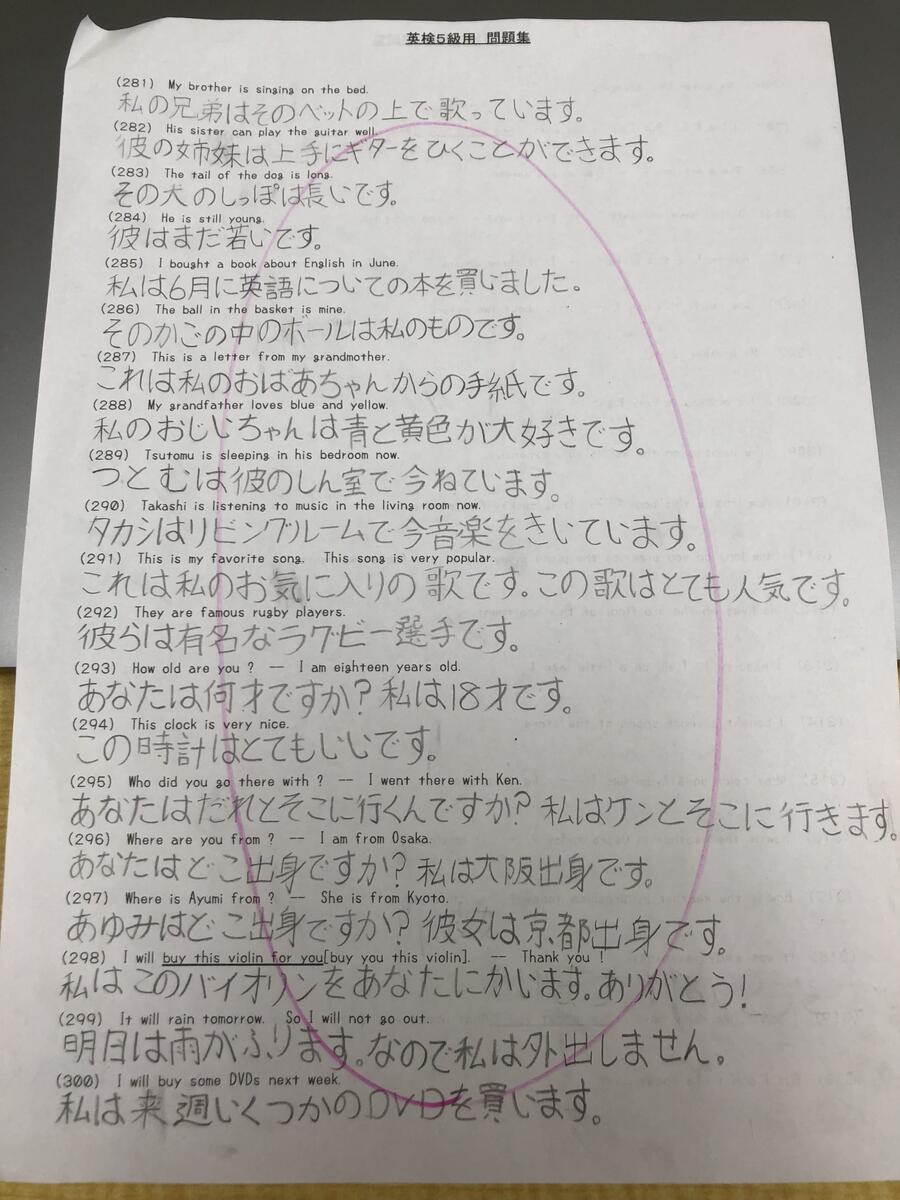 英検5級用 問題集
(281) My brother is singing on the bed.
私の兄弟はそのベットの上で歌っています。
(282) His sister can play the guitar well.
彼の姉妹は上手にギターをひくことができます。
(283) The tail of the dog is long.
その犬のしっぽは長いです。
(284) He is still young.
彼はまだ若いです。
(285) I bought a book about English in June.
私は6月に英語についての本を買いました。
(286) The ball in the basket is mine.
そのかごの中のボールは私のものです。
(287) This is a letter from my grandmother.
これは私のおばあちゃんからの手紙です。
(288) My grandfather loves blue and yellow.
私のおじいちゃんは青と黄色が大好きです。
(289) Tsutomu is sleeping in his bedroom now.
つとむは彼のしん室で今ねています。
(290) Takashi is listening to music in the living room now.
タカシはリビングルームで今音楽をきいています。
(291) This is my favorite song. This song is very popular.
これは私のお気に入りの歌です。この歌はとても人気です。
(292) They are famous rugby players.
彼らは有名なラグビー選手です。
(293) How old are you ? ― I am eighteen years old.
あなたは何才ですか?私は18才です。
(294) This clock is very nice.
この時計はとてもいいです。
(295) Who did you go there with ? -- I went there with Ken.
あなたはだれとそこに行くんですか?私はケンとそこに行きます。
(296) Where are you from ? -- I am from Osaka.
あなたはどこ出身ですか?私は大阪出身です。
(297) Where is Ayumi from ? -- She is from Kyoto.
あゆみはどこ出身ですか?彼女は京都出身です。
(298) I will buy this violin for you[buy you this violin]. -- Thank you !
私はこのバイオリンをあなたにかいます。ありがとう!
(299) It will rain tomorrow. So I will not go out.
明日は雨がふります。なので私は外出しません。
(300) I will buy some DVDs next week.
私は来週いくつかのDVDを買います。